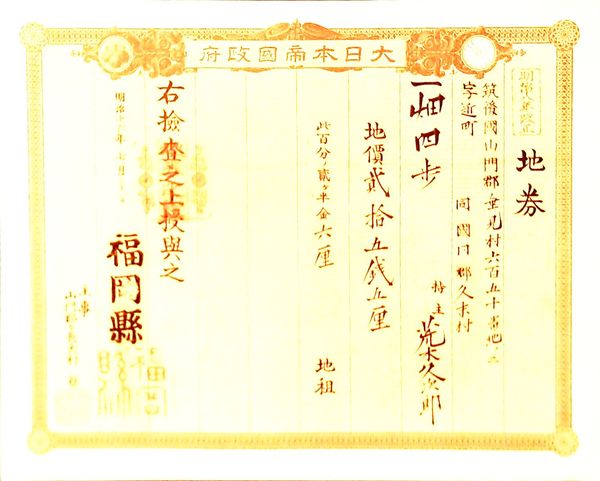 大日本帝國政府
地券
筑後國山門郡垂見村六百五十番地ノ二
字近町
同國同郡久末村
一畑四歩
持主 荒木久次郎
地價貳拾五銭五厘
此百分ノ貳ヶ半金六厘
地租
右檢査之上授與之
明治十
年七月
福岡縣
主事